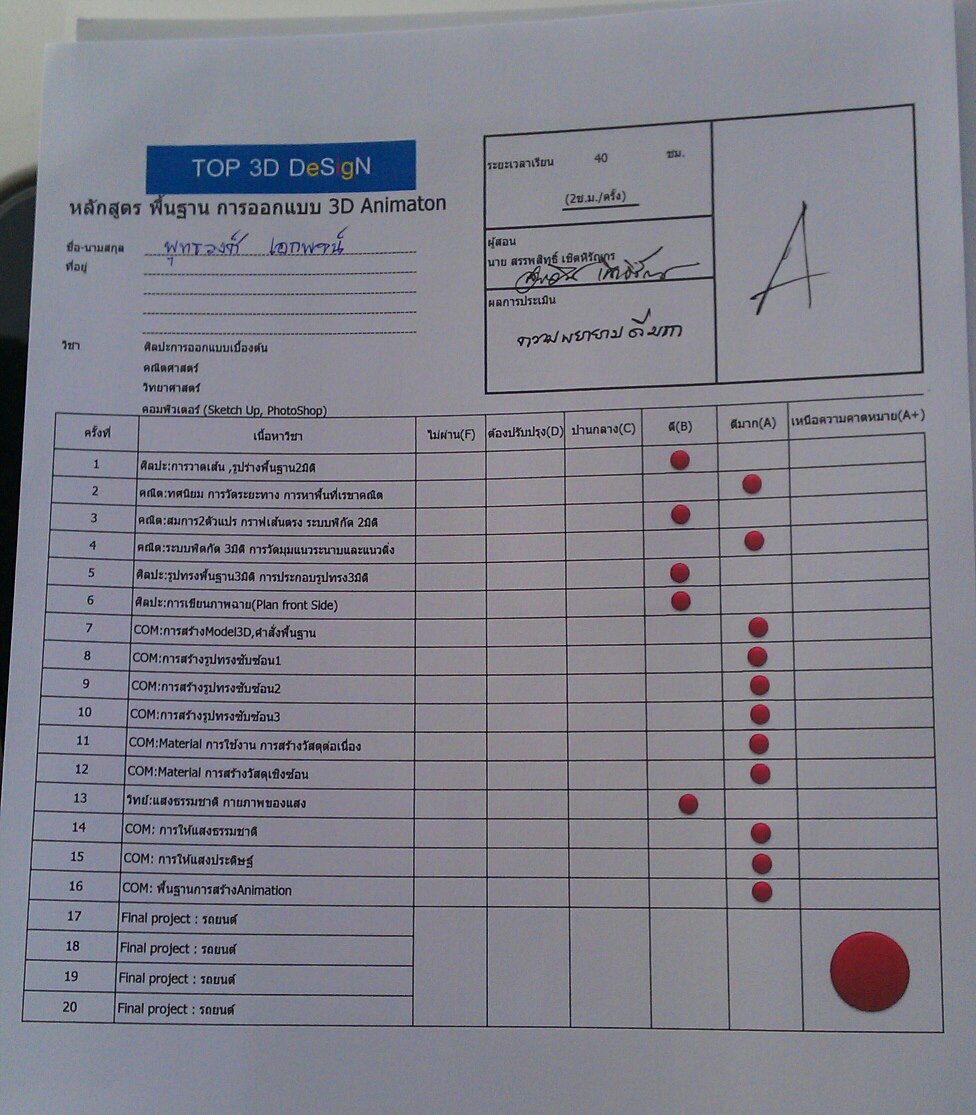 TOP 3D DeSigN
หลักสูตร พื้นฐาน การออกแบบ 3D Animaton
ชื่อ-นามสกุล พุทธวงศ์
ที่อยู่
วิชา ศิลปะการออกแบบเบื้องต้น
คณิตศาสตร์
วิทยาศาสตร์
คอมพิวเตอร์ (Sketch Up, PhotoShop)
ระยะเวลาเรียน 40 ชม.
(2ช.ม./ครั้ง)
ผู้สอน
นาย สรรพสิทธิ์ เชิดหิรัญกร
ผลการประเมิน
ความพยายาม ดีมาก
A
ครั้งที่ เนื้อหาวิชา ไม่ผ่าน(F) ต้องปรับปรุง(D) ปานกลาง(C) ดี(B) ดีมาก(A) เหนือความคาดหมาย(A+)
1 ศิลปะ:การวาดเส้น ,รูปร่างพื้นฐาน2มิติ
2 คณิต:ทศนิยม การวัดระยะทาง การหาพื้นที่เรขาคณิต
3 คณิต:สมการ2ตัวแปร กราฟเส้นตรง ระบบพิกัด 2มิติ
4 คณิต:ระบบพิตกัด 3มิติ การวัดมุมแนวระนาบและแนวดิ่ง
5 ศิลปะ:รูปทรงพื้นฐาน3มิติ การประกอบรูปทรง3มิติ
6 ศิลปะ:การเขียนภาพฉาย(Plan front Side)
7 COM:การสร้างModel3D,คำสั่งพื้นฐาน
8 COM:การสร้างรูปทรงซับซ้อน1
9 COM:การสร้างรูปทรงซับซ้อน2
10 COM:การสร้างรูปทรงซับซ้อน3
11 COM:Material การใช้งาน การสร้างวัสดุต่อเนื่อง
12 COM:Material การสร้างวัสดุเชิงซ้อน
13 วิทย์:แสงธรรมชาติ กายภาพของแสง
14 COM: การให้แสงธรรมชาติ
15 COM: การให้แสงประดิษฐ์
16 COM: พื้นฐานการสร้างAnimation
17 Final project : รถยนต์
18 Final project : รถยนต์
19 Final project : รถยนต์
20 Final project : รถยนต์